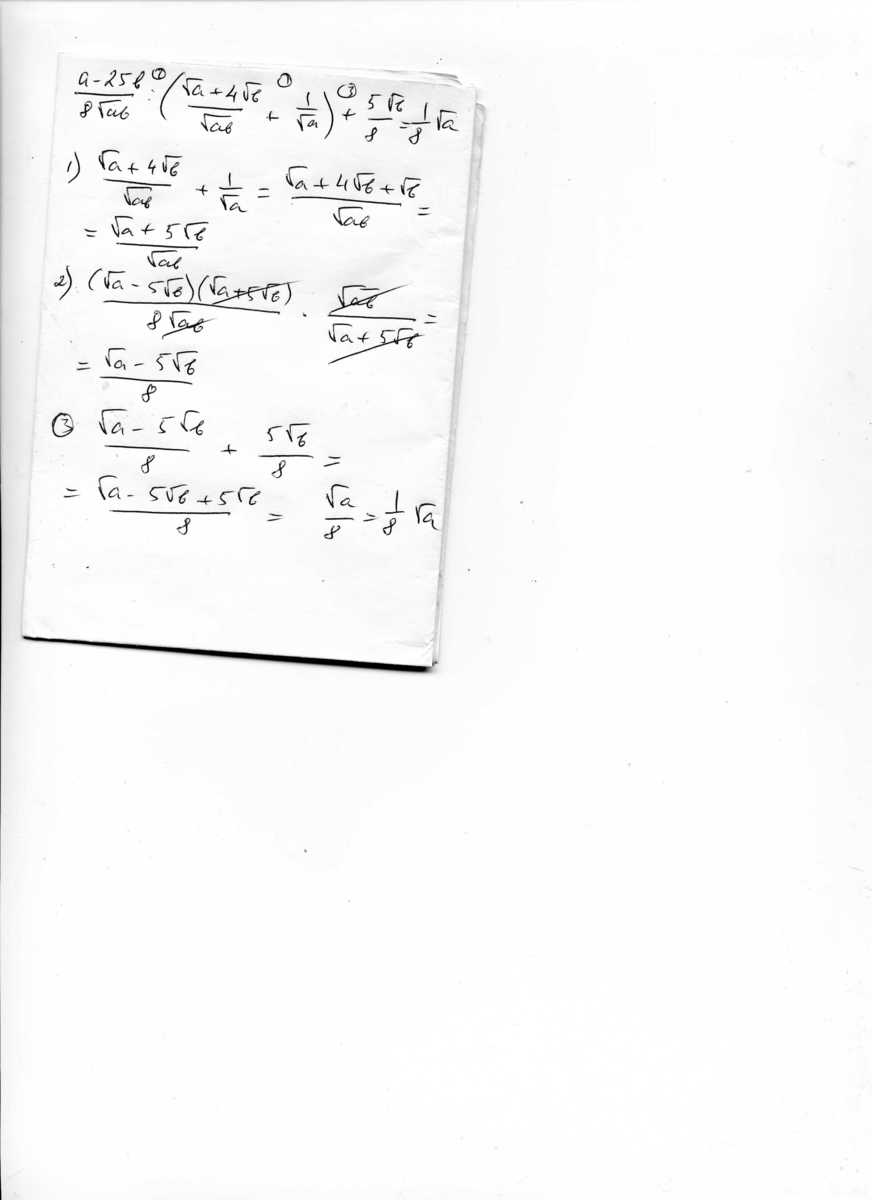 (a-25b)/(8√ab) ②: ((√a+4√b)/√ab ①+ 1/√a) ③+ 5√b/8 = 1/8 √a
1) (√a+4√b)/√ab + 1/√a = (√a+4√b+√b)/√ab =
= (√a+5√b)/√ab
2) (√a-5√b)(√a+5√b)/(8√ab) · √ab/(√a+5√b) =
= (√a-5√b)/8
③ (√a-5√b)/8 + 5√b/8 =
= (√a-5√b+5√b)/8 = √a/8 = 1/8 √a